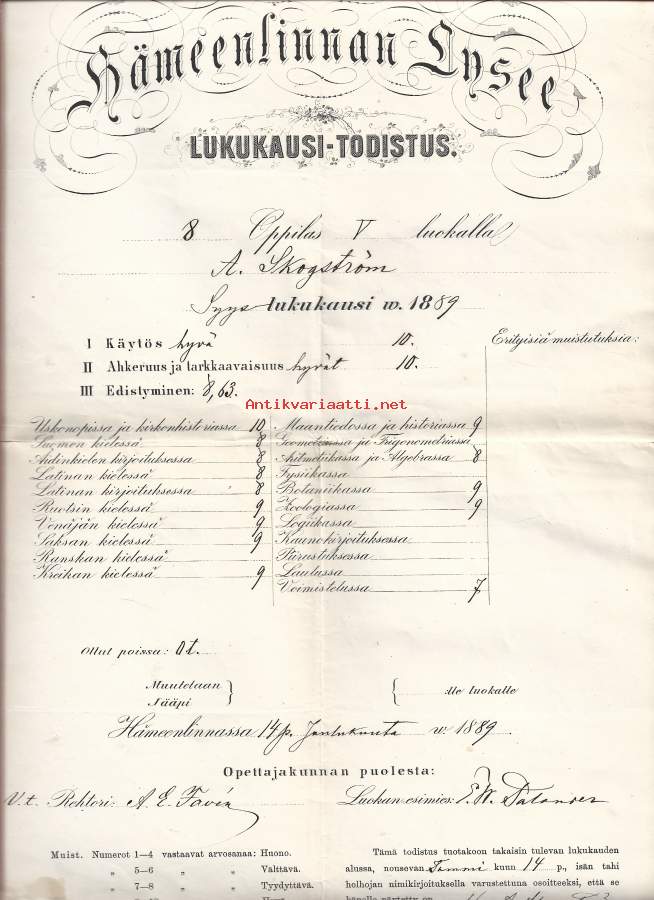 Hämeenlinnan Lysee
LUKUKAUSI-TODISTUS.
8 Oppilas V luokalla
A. Skogström
Syys lukukausi w. 1889
I Käytös hyvä 10.
II Ahkeruus ja tarkkaavaisuus hyvät 10.
III Edistyminen: 8,63.
Erityisiä muistutuksia:
Antikvariaatti.net
Uskonopissa ja kirkonhistoriassa 10
Suomen kielessä 8
Äidinkielen kirjoituksessa 8
Latinan kielessä 8
Latinan kirjoituksessa 8
Ruotsin kielessä 9
Venäjän kielessä 9
Saksan kielessä 9
Ranskan kielessä
Kreikan kielessä 9
Maantiedossa ja historiassa 9
Geometriassa ja Trigonometriassa
Aritmetikassa ja Algebrassa 8
Fysiikassa
Botaniikassa 9
Zoologiassa 9
Logiikassa
Kaunokirjoituksessa
Piirustuksessa
Laulussa
Voimistelussa 7
Ollut poissa: 0 t.
Muutetaan
Jääpi
:lle luokalle
Hämeenlinnassa 14 p. Joulukuuta w. 1889
Opettajakunnan puolesta:
V.t. Rehtori: A. E. Favén
Luokan esimies:
Muist. Numerot 1—4 vastaavat arvosanaa: Huono.
„ 5—6 „ „ Välttävä.
„ 7—8 „ „ Tyydyttävä.
Tämä todistus tuotakoon takaisin tulevan lukukauden
alussa, nousevan Tammi kuun 14 p., isän tahi
holhojan nimikirjoituksella varustettuna osoitteeksi, että se